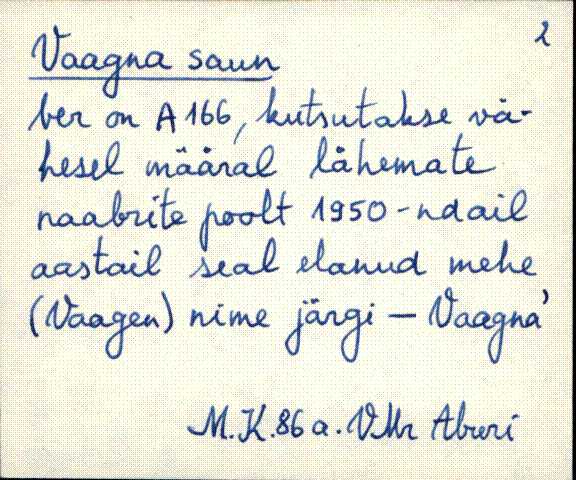 2
Vaagna saun
ber on A 166, kutsutakse vä-
hesel määral lähemate
naabrite poolt 1950-ndail
aastail seal elanud mehe
(Vaagen) nime järgi – Vaagna'
M.K. 86 a. VMr Aburi